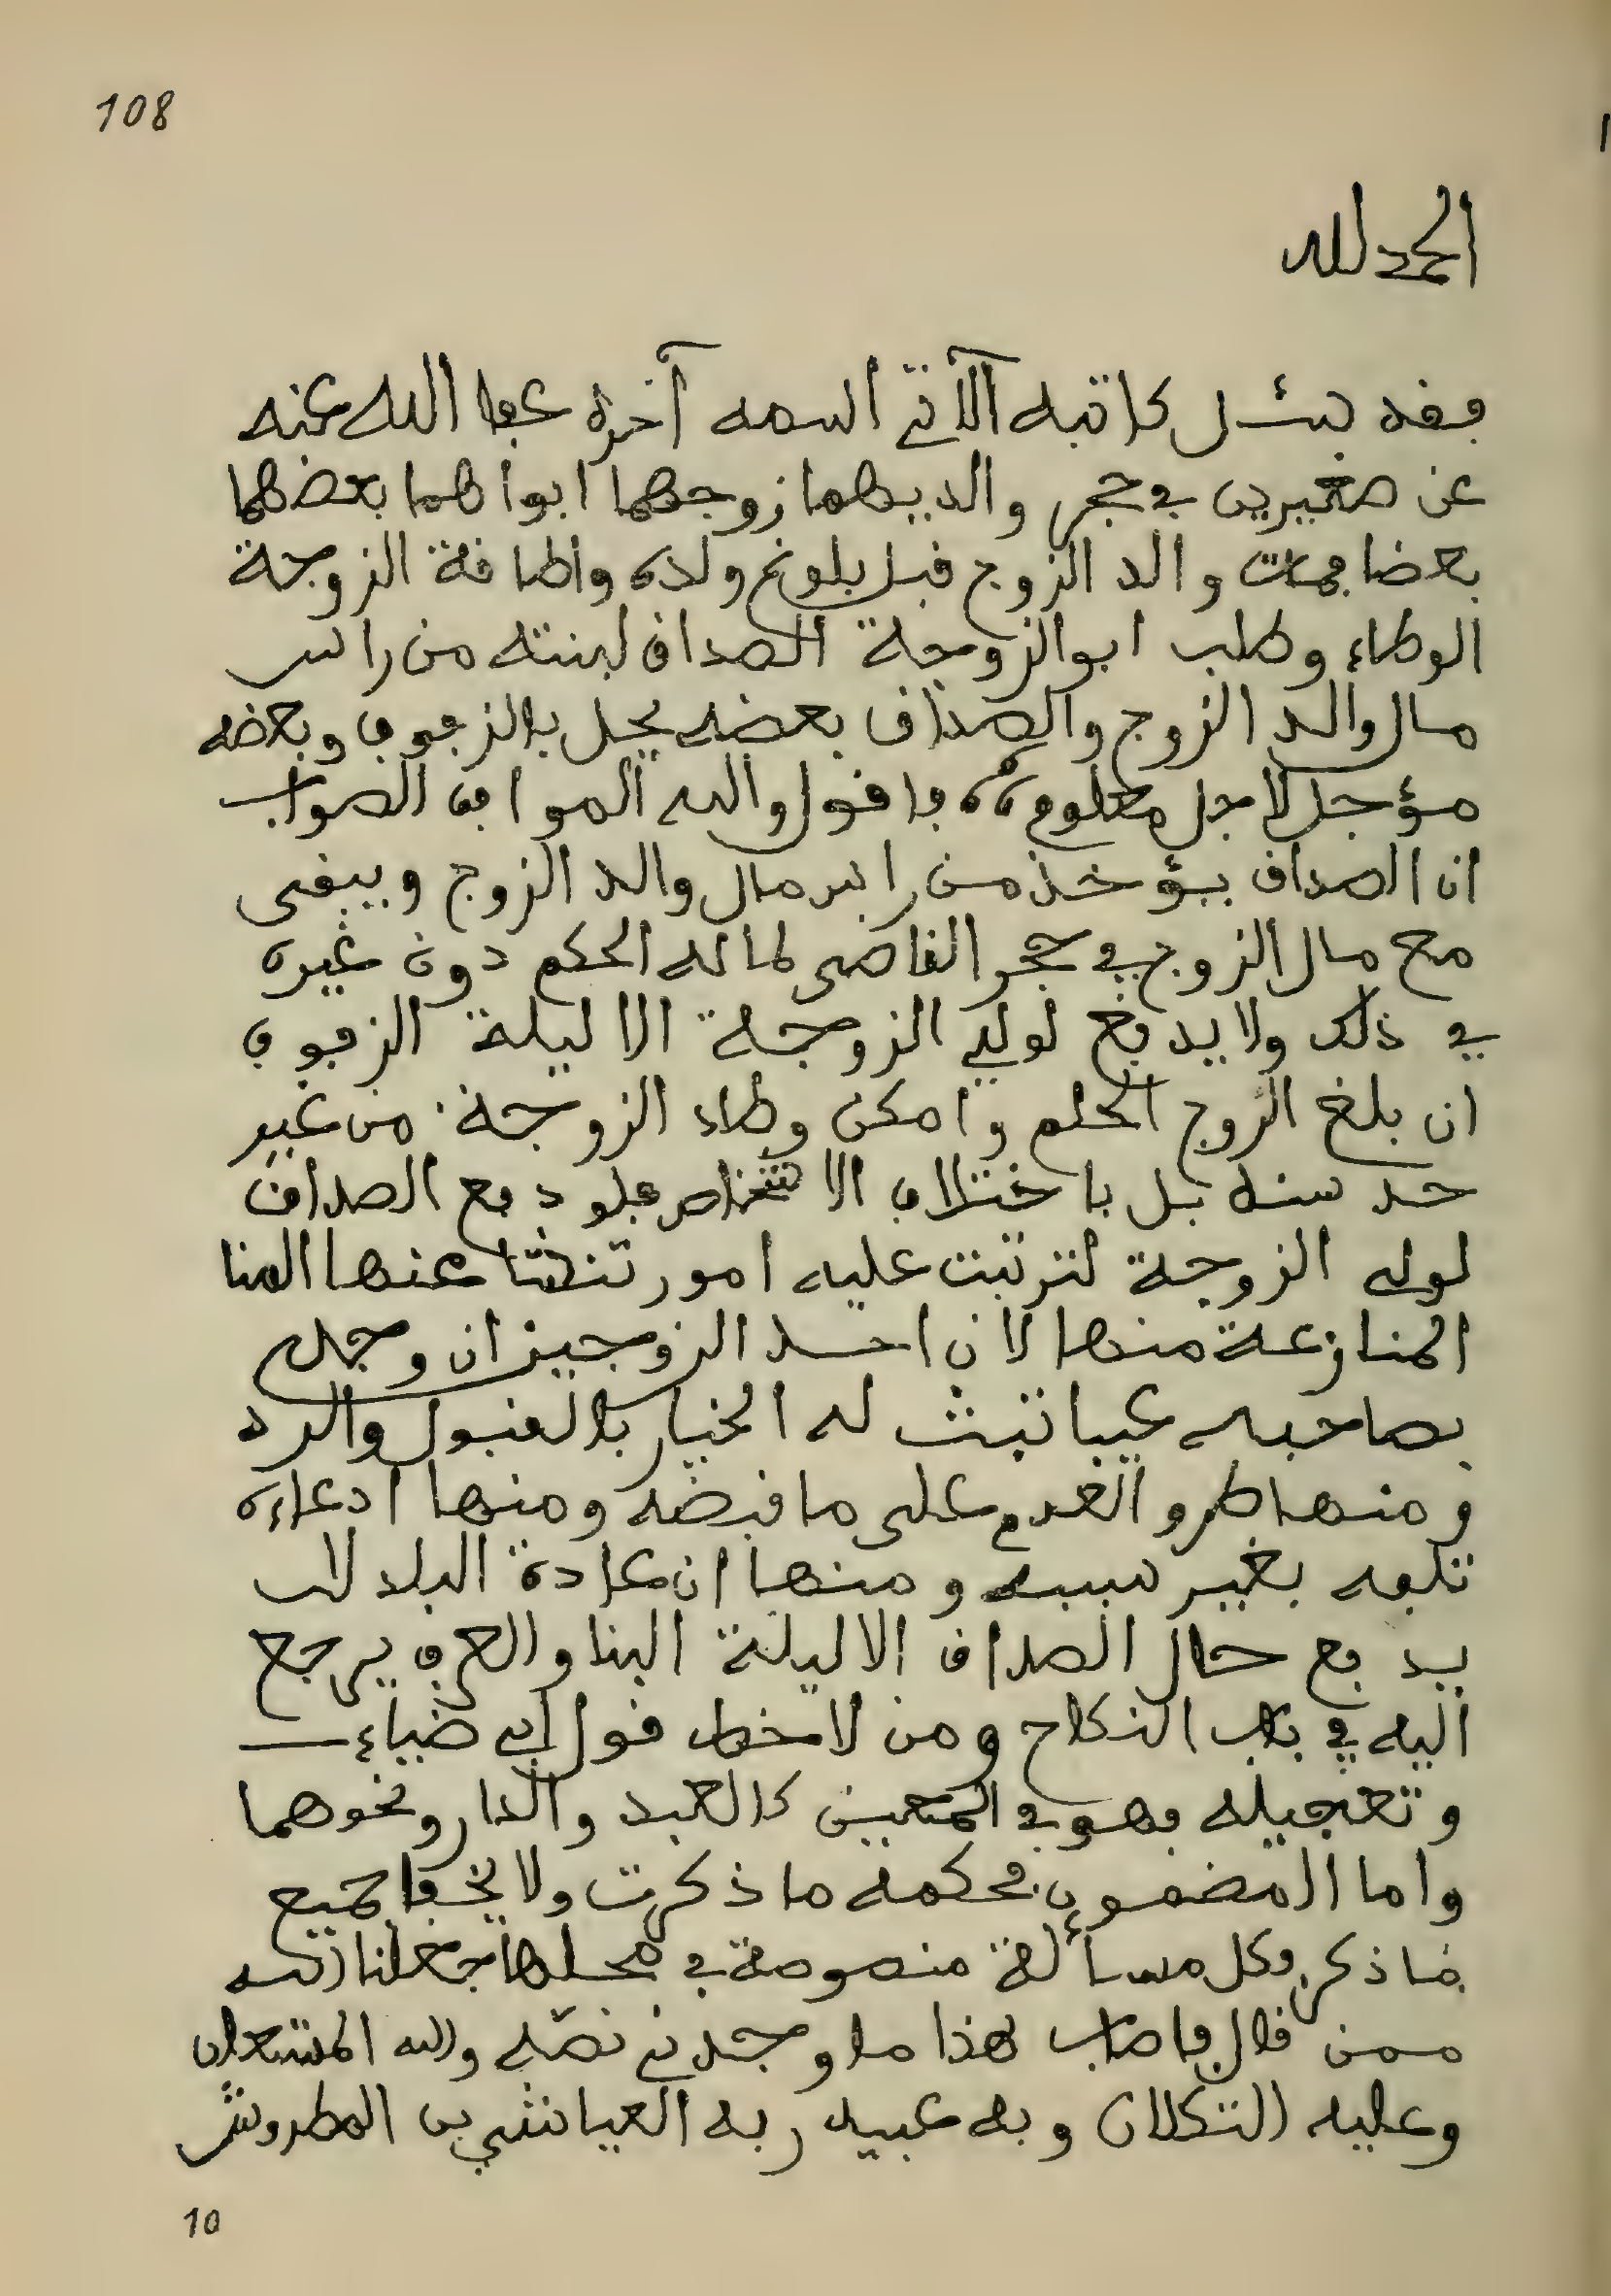 108
الحمد لله
فقد سئل كاتبه الآتي اسمه آخره عفا الله عنه
عن صغيرين في حجر والديهما زوجهما ابواهما بعضهما
بعضا فمات والد الزوج قبل بلوغ ولده واطاقة الزوجة
الوطء وطلب ابو الزوجة الصداق لبنته من راس
مال والد الزوج والصداق بعضه يحل بالزفوف وبعضه
مؤجل لاجل معلوم فاقول والله الموافق الصواب
ان الصداق يؤخذ من راس مال والد الزوج ويبقى
مع مال الزوج في حجر القاضى لما له الحكم دون غيره
في ذلك ولا يدفع لولي الزوجة الا ليلة الزفوف
ان بلغ الزوج الحلم وامكن وطء الزوجة من غير
حد سنه بل باختلاف الاشخاص فلو دفع الصداق
لولي الزوجة لترتبت عليه امور تنشا عنها المنا
المنازعة منها لان احد الزوجين ان وجد
بصاحبه عيبا ثبت له الخيار بالقبول والرد
ومنها طرو العدم على ما قبضه ومنها ادعاءه
تلفه بغير سببه ومنها ان عادة البلد لا
يدفع حال الصداق الا ليلة البنا والعرف يرجع
اليه في باب النكاح ومن لاحظ قول ابي ضياء
وتعجيله فهو في المعين كالعبد والدار ونحوهما
واما المضمون فحكمه ما ذكرت ولا يخفا جميع
ما ذكر وكل مسألة منصوصة في محلها جعلنا الله
ممن قال فاصاب هذا ما وجد في نصه والله المستعان
وعليه التكلان وبه عبيد ربه العياشي بن المطروش
10